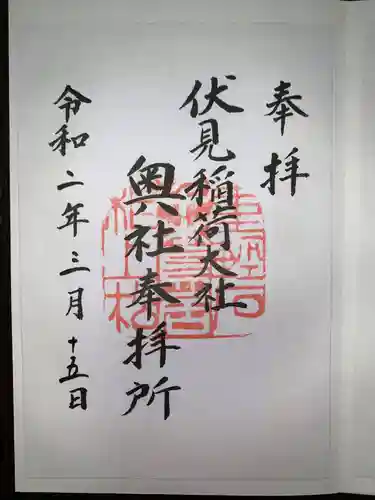 奉拝
伏見稲荷大社
奥社奉拝所
令和二年三月十五日